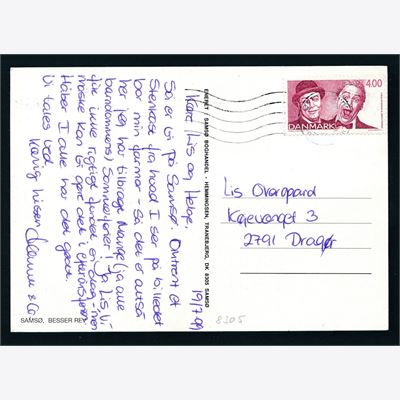 19/7-99
Kære Lis og Helge.
Så er vi på Samsø. Omtrent et
stenkast fra hvad I ser på billedet
bor min farmor - så det er altså
her jeg har tilbragt mange (ja alle
barndommens) sommerferier! Ja Lis, vi
fik ikke rigtigt fundet en dag - men
måske kan vi gøre det i efterårsferien.
Håber I alle har det godt.
Vi tales ved.
Kærlig hilsen
SAMSØ, BESSER REV
ENERET SAMSØ BOGHANDEL - HENNINGSEN, TRANEBJERG, DK 8305 SAMSØ
4.00
DANMARK
Lis Overgaard
Køgevænget 3
2791 Dragør
8305